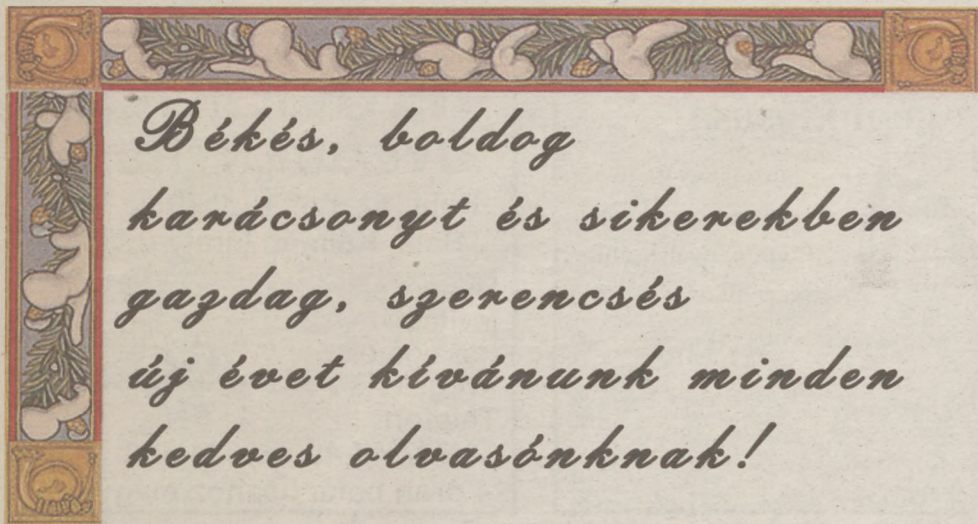 Békés, boldog
karácsonyt és sikerekben
gazdag, szerencsés
új évet kívánunk minden
kedves olvasónknak!